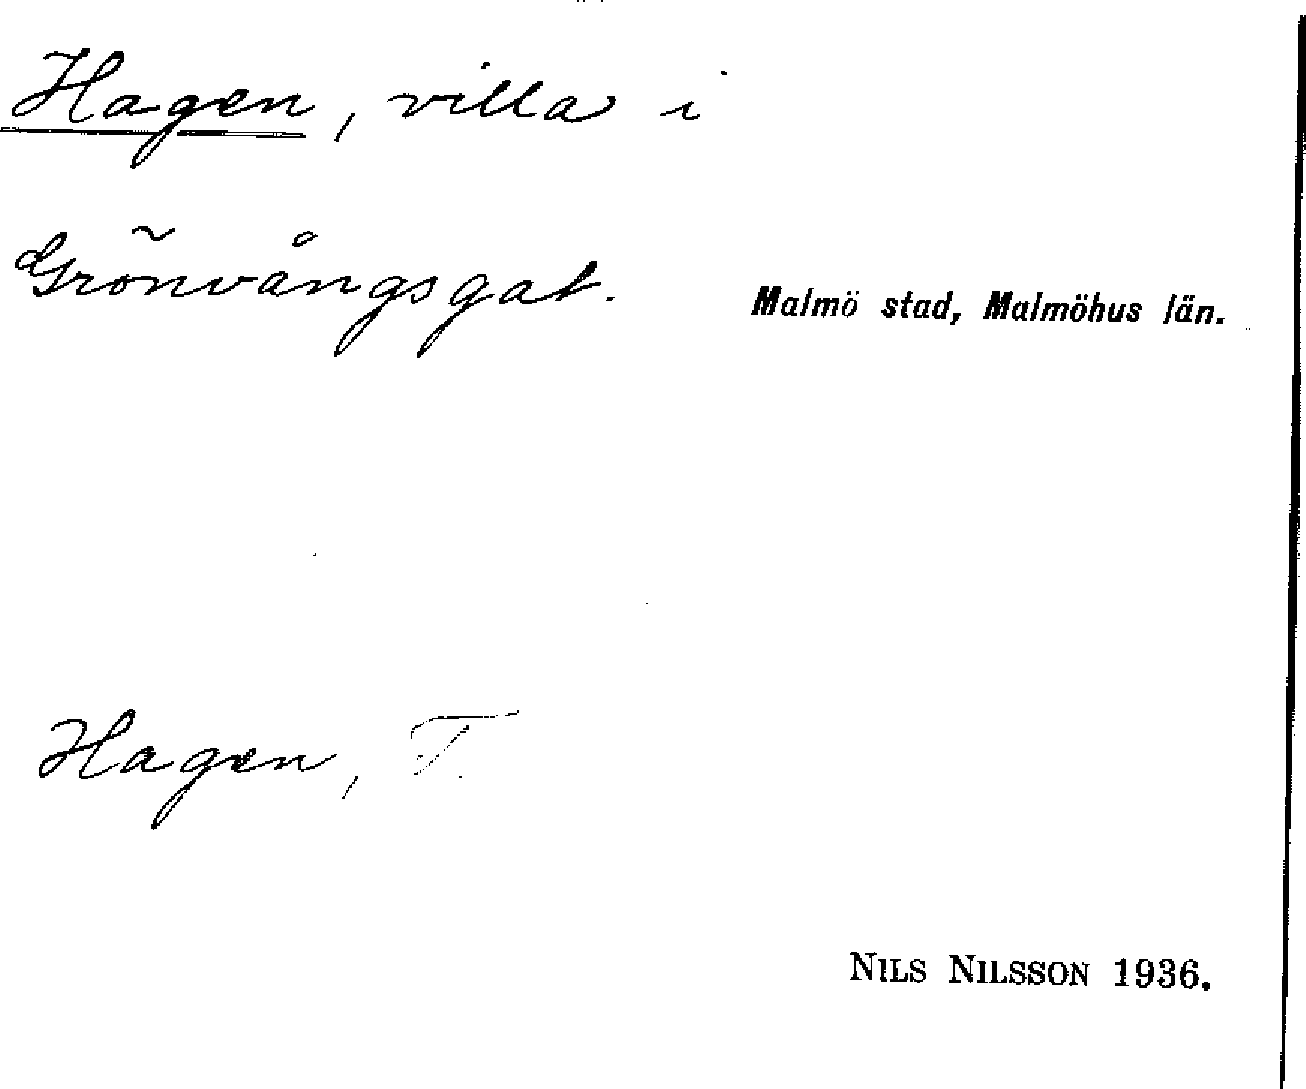 Hagen, villa i
Grönvångsgat.
Malmö stad, Malmöhus län.
Hagen, T.
NILS NILSSON 1936.